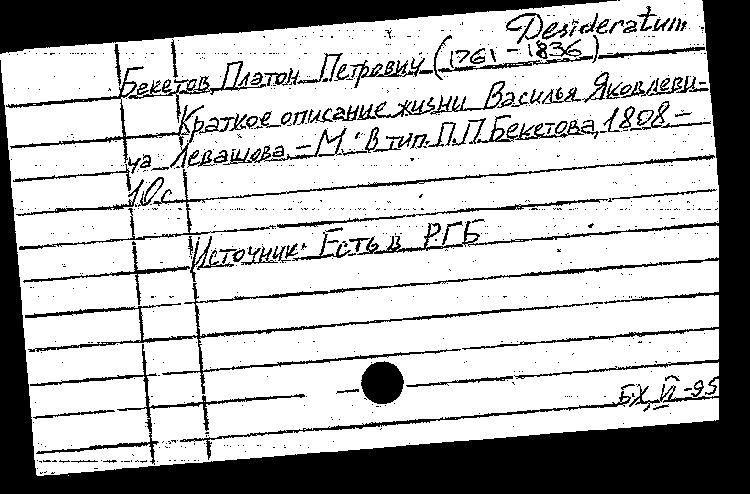 Desideratum
Бекетов, Платон Петрович (1761-1836)
Краткое описание жизни Василья Яковлеви-
ча Левашова. - М.: В тип. П.П. Бекетова, 1808. -
10 с.
Источник: Есть в РГБ
БХ, VI -95